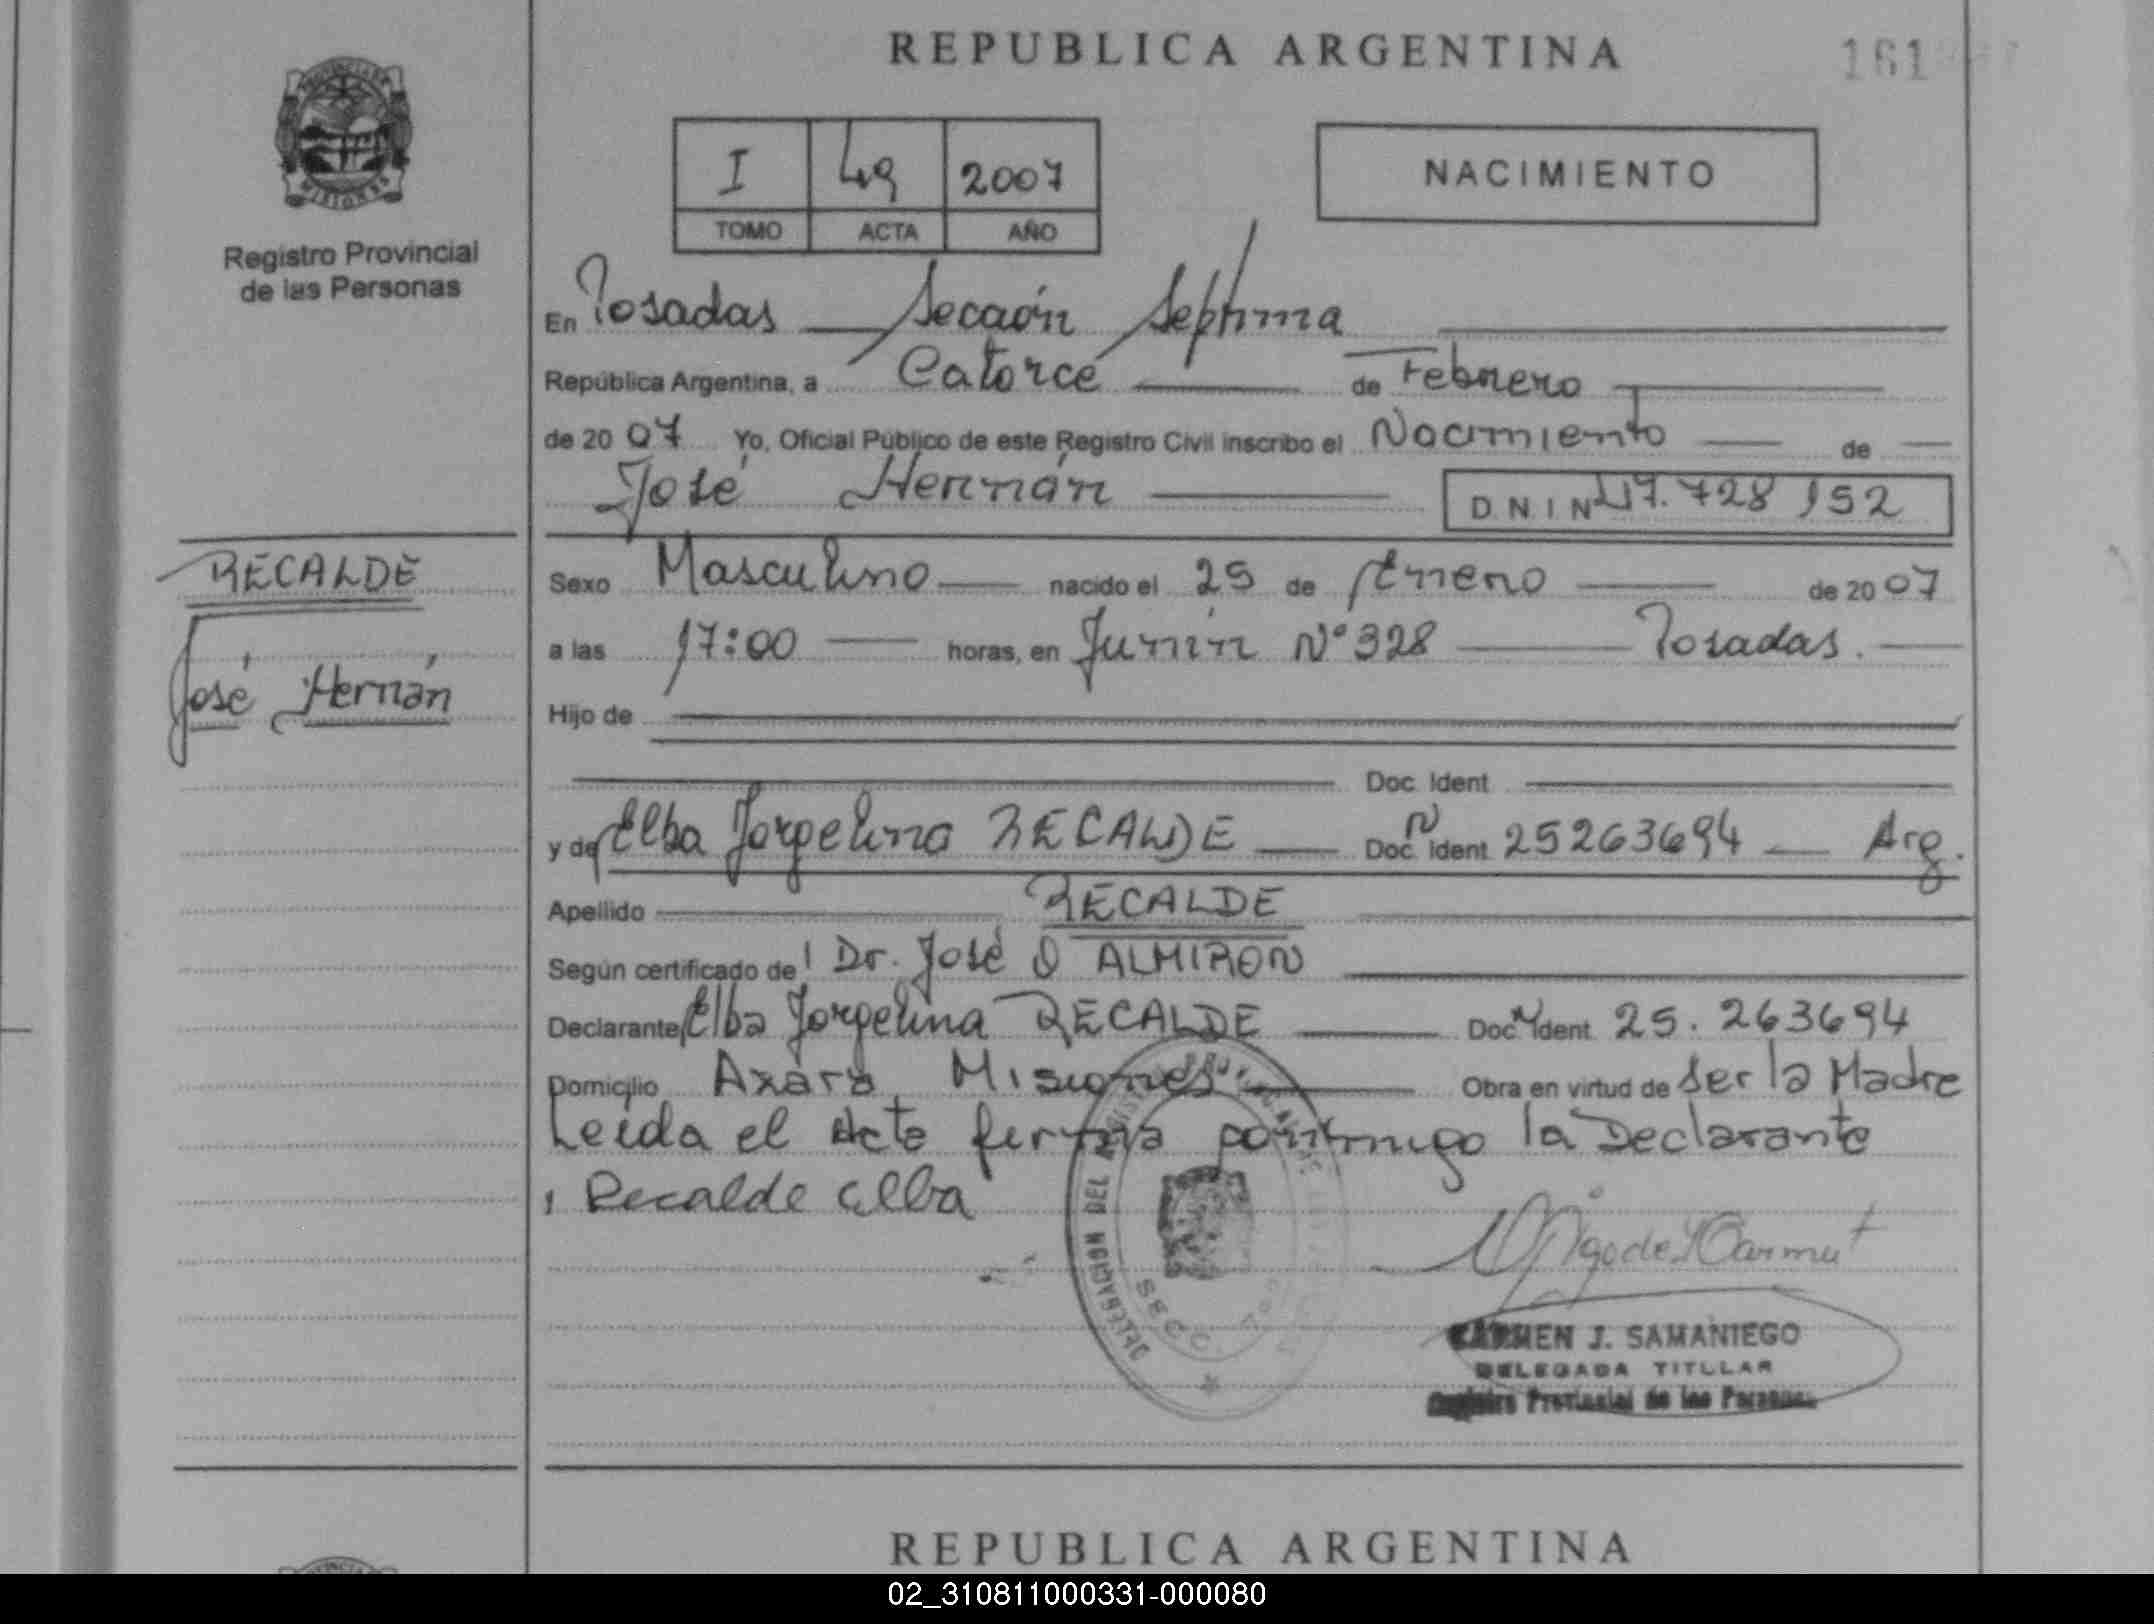 REPUBLICA ARGENTINA
161
PROVINCIA DE
MISIONES
Registro Provincial
de las Personas
I 49 2007
TOMO ACTA AÑO
NACIMIENTO
En Posadas Sección Septima
República Argentina, a Catorce de Febrero
de 20 07 Yo, Oficial Público de este Registro Civil inscribo el Nacimiento de
José Hernán D.N.I Nº 47.728 152
RECALDE
José Hernán
Sexo Masculino nacido el 25 de Enero de 20 07
a las 17:00 horas, en Junín Nº 328 Posadas.
Hijo de
Doc. Ident
y de Elba Jorgelina RECALDE Doc. N Ident 25263694 Arg.
Apellido RECALDE
Según certificado de Dr. José O ALMIRON
Declarante Elba Jorgelina RECALDE Doc N Ident. 25.263694
Domicilio Azara Misiones. Obra en virtud de ser la Madre
Leida el Acta firma conmigo la Declarante
Recalde elba
DEL
SECC.
CARMEN J. SAMANIEGO
DELEGADA TITULAR
Registro Provincial de las Personas
REPUBLICA ARGENTINA
02_310811000331-000080